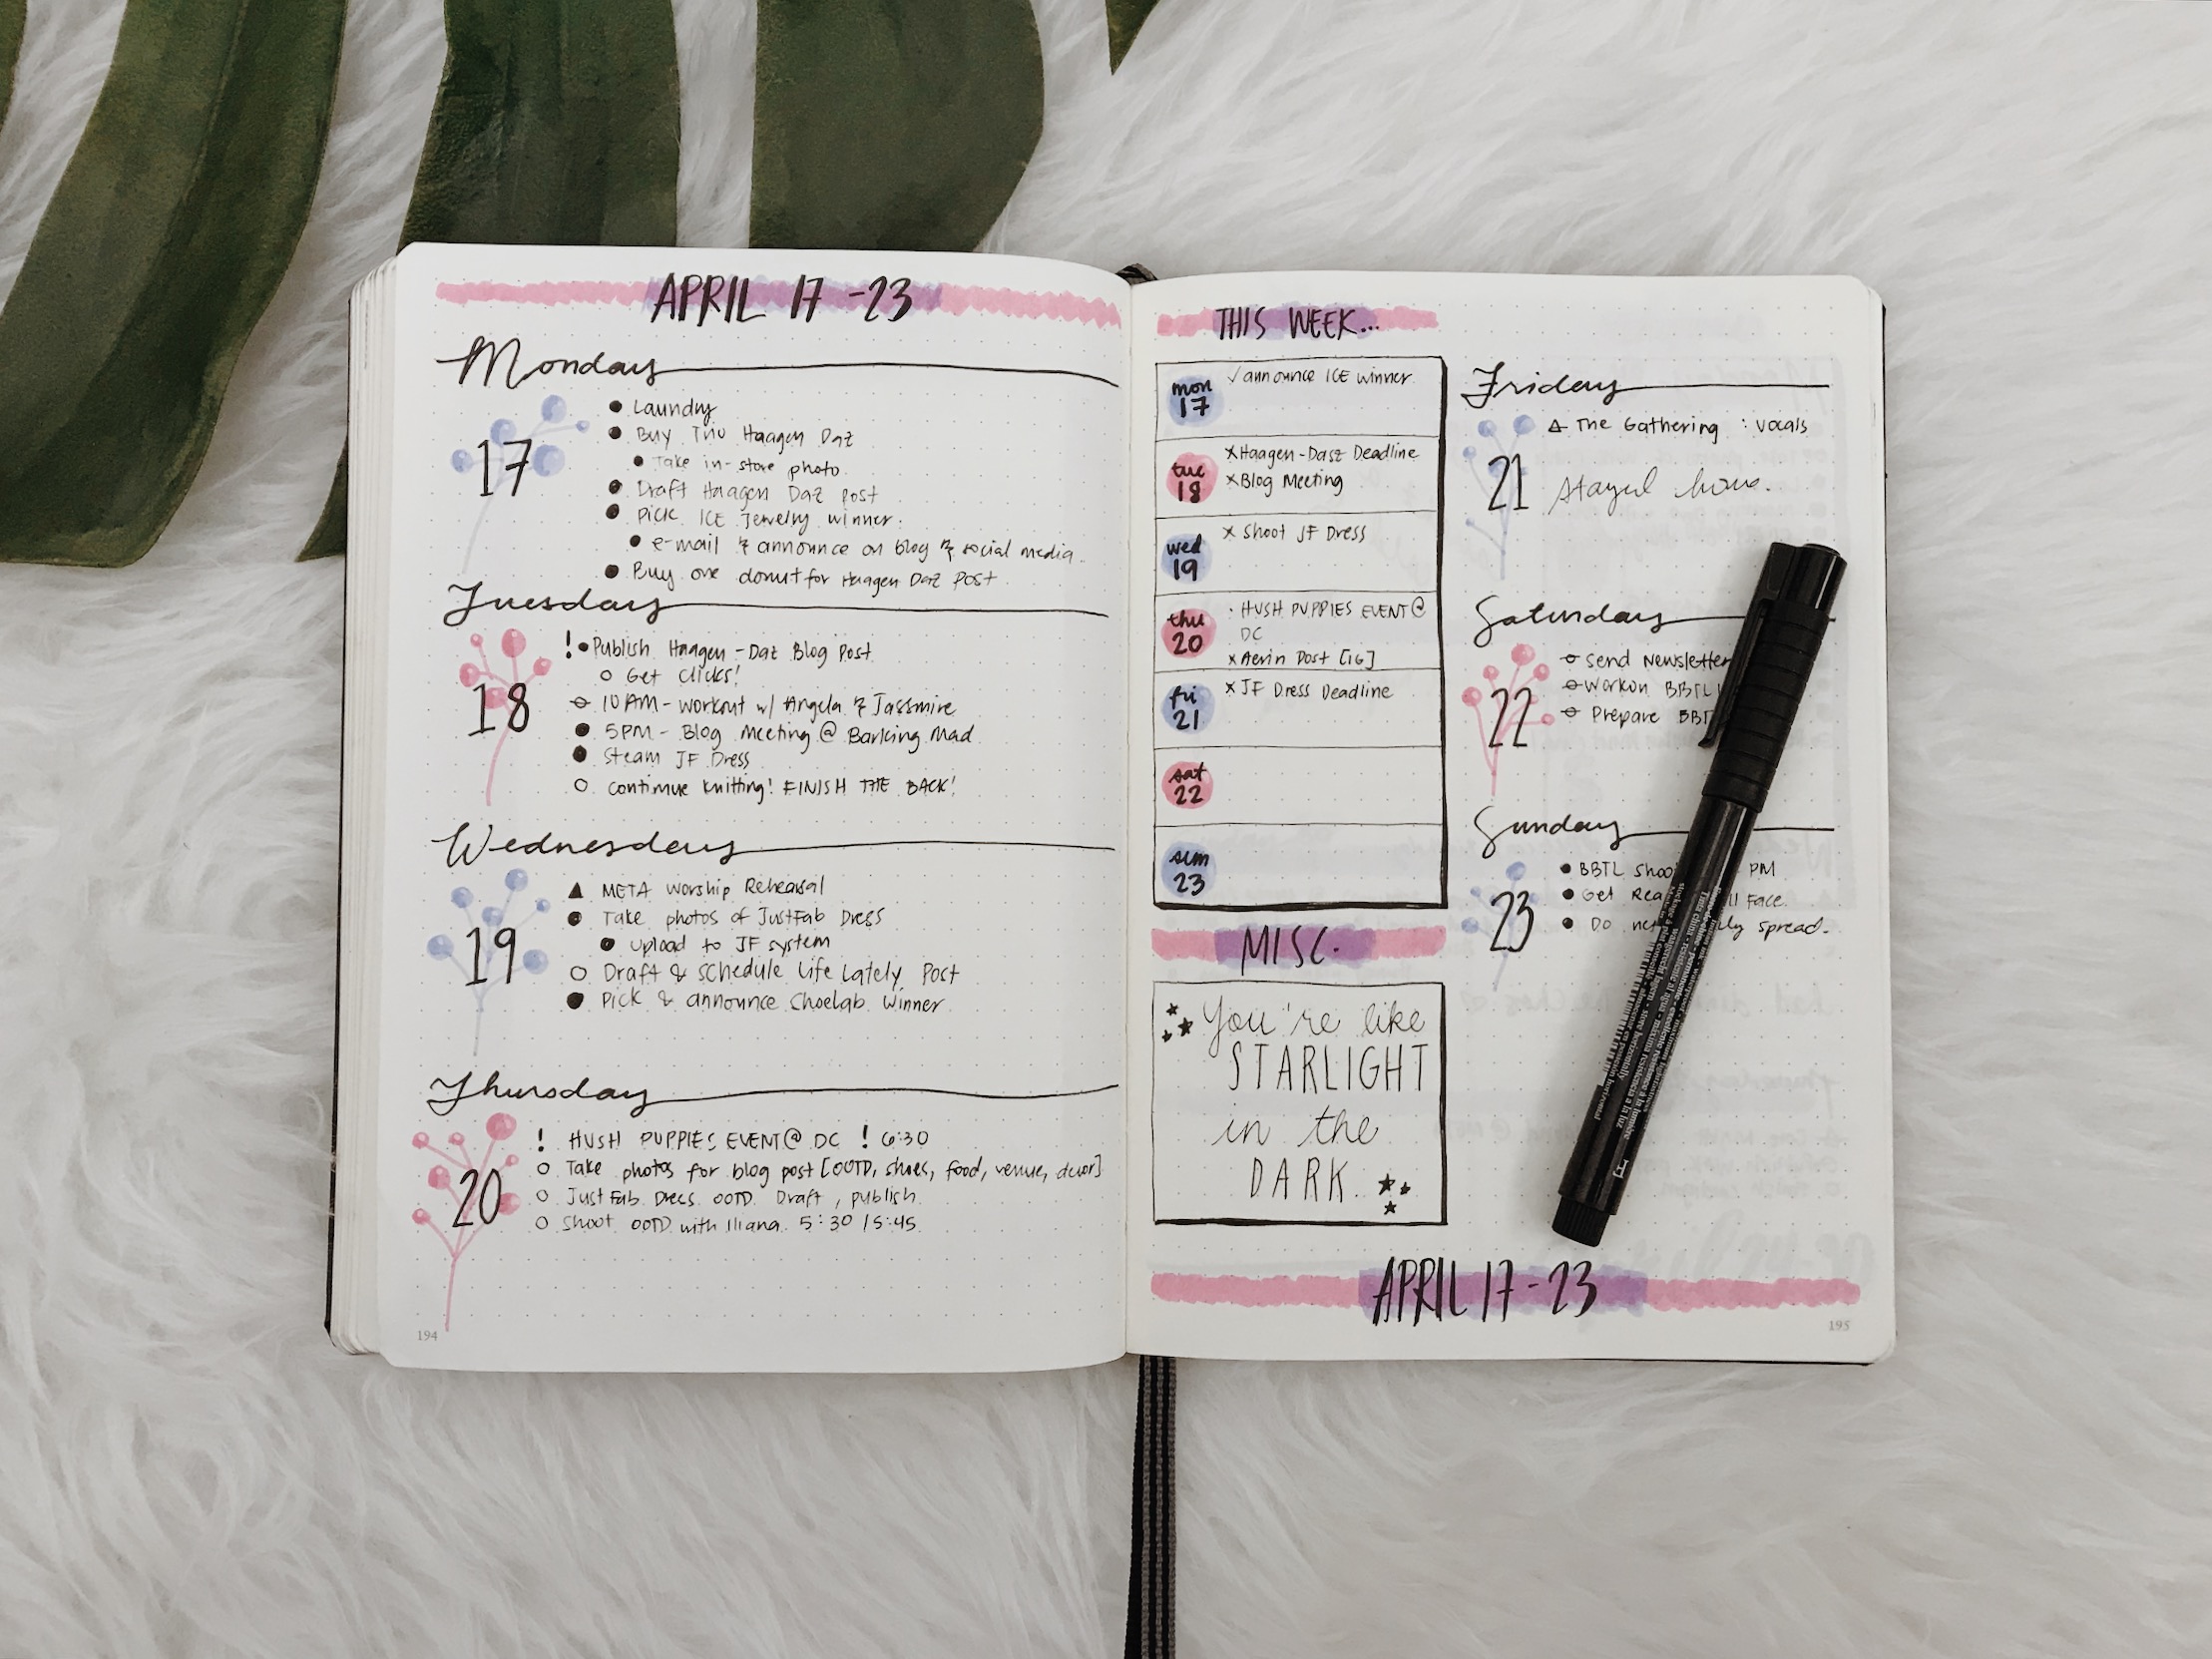 APRIL 17-23
Monday
17
Laundry
Buy Haagen Daz
Take in-store photo
Draft Haagen Daz Post
Pick ICE Jewelry winner.
e-mail & announce on blog & social media
Buy one donut for Haagen Daz Post
Tuesday
18
! Publish Haagen-Daz Blog Post
Get clicks!
10AM - workout w/ Angela & Jassmine
5PM - Blog Meeting @ Barking Mad
Steam JF Dress
Continue knitting! FINISH THE BACK!
Wednesday
19
META Worship Rehearsal
Take photos of JustFab Dress
Upload to JF system
Draft & schedule Life Lately Post
Pick & announce Shoelab Winner
Thursday
20
! HUSH PUPPIES EVENT @ DC ! 6:30
Take photos for blog post [OOTD, shoes, food, venue, decor]
JustFab Dress OOTD Draft, publish
Shoot OOTD with Iliana 5:30 / 5:45
194
THIS WEEK...
mon
17
✓ announce ICE winner
tue
18
x Haagen-Dasz Deadline
x Blog Meeting
wed
19
x Shoot JF Dress
thu
20
· HUSH PUPPIES EVENT @
DC
x Aerin Post [16]
fri
21
x JF Dress Deadline
sat
22
sun
23
MISC.
You're like
STARLIGHT
in the
DARK.
Friday
21
The Gathering : vocals
Stayed home.
Saturday
22
Send Newsletter
Work on BBTL
Prepare
Sunday
23
BBTL PM
Get Face
Do spread.
APRIL 17-23
195